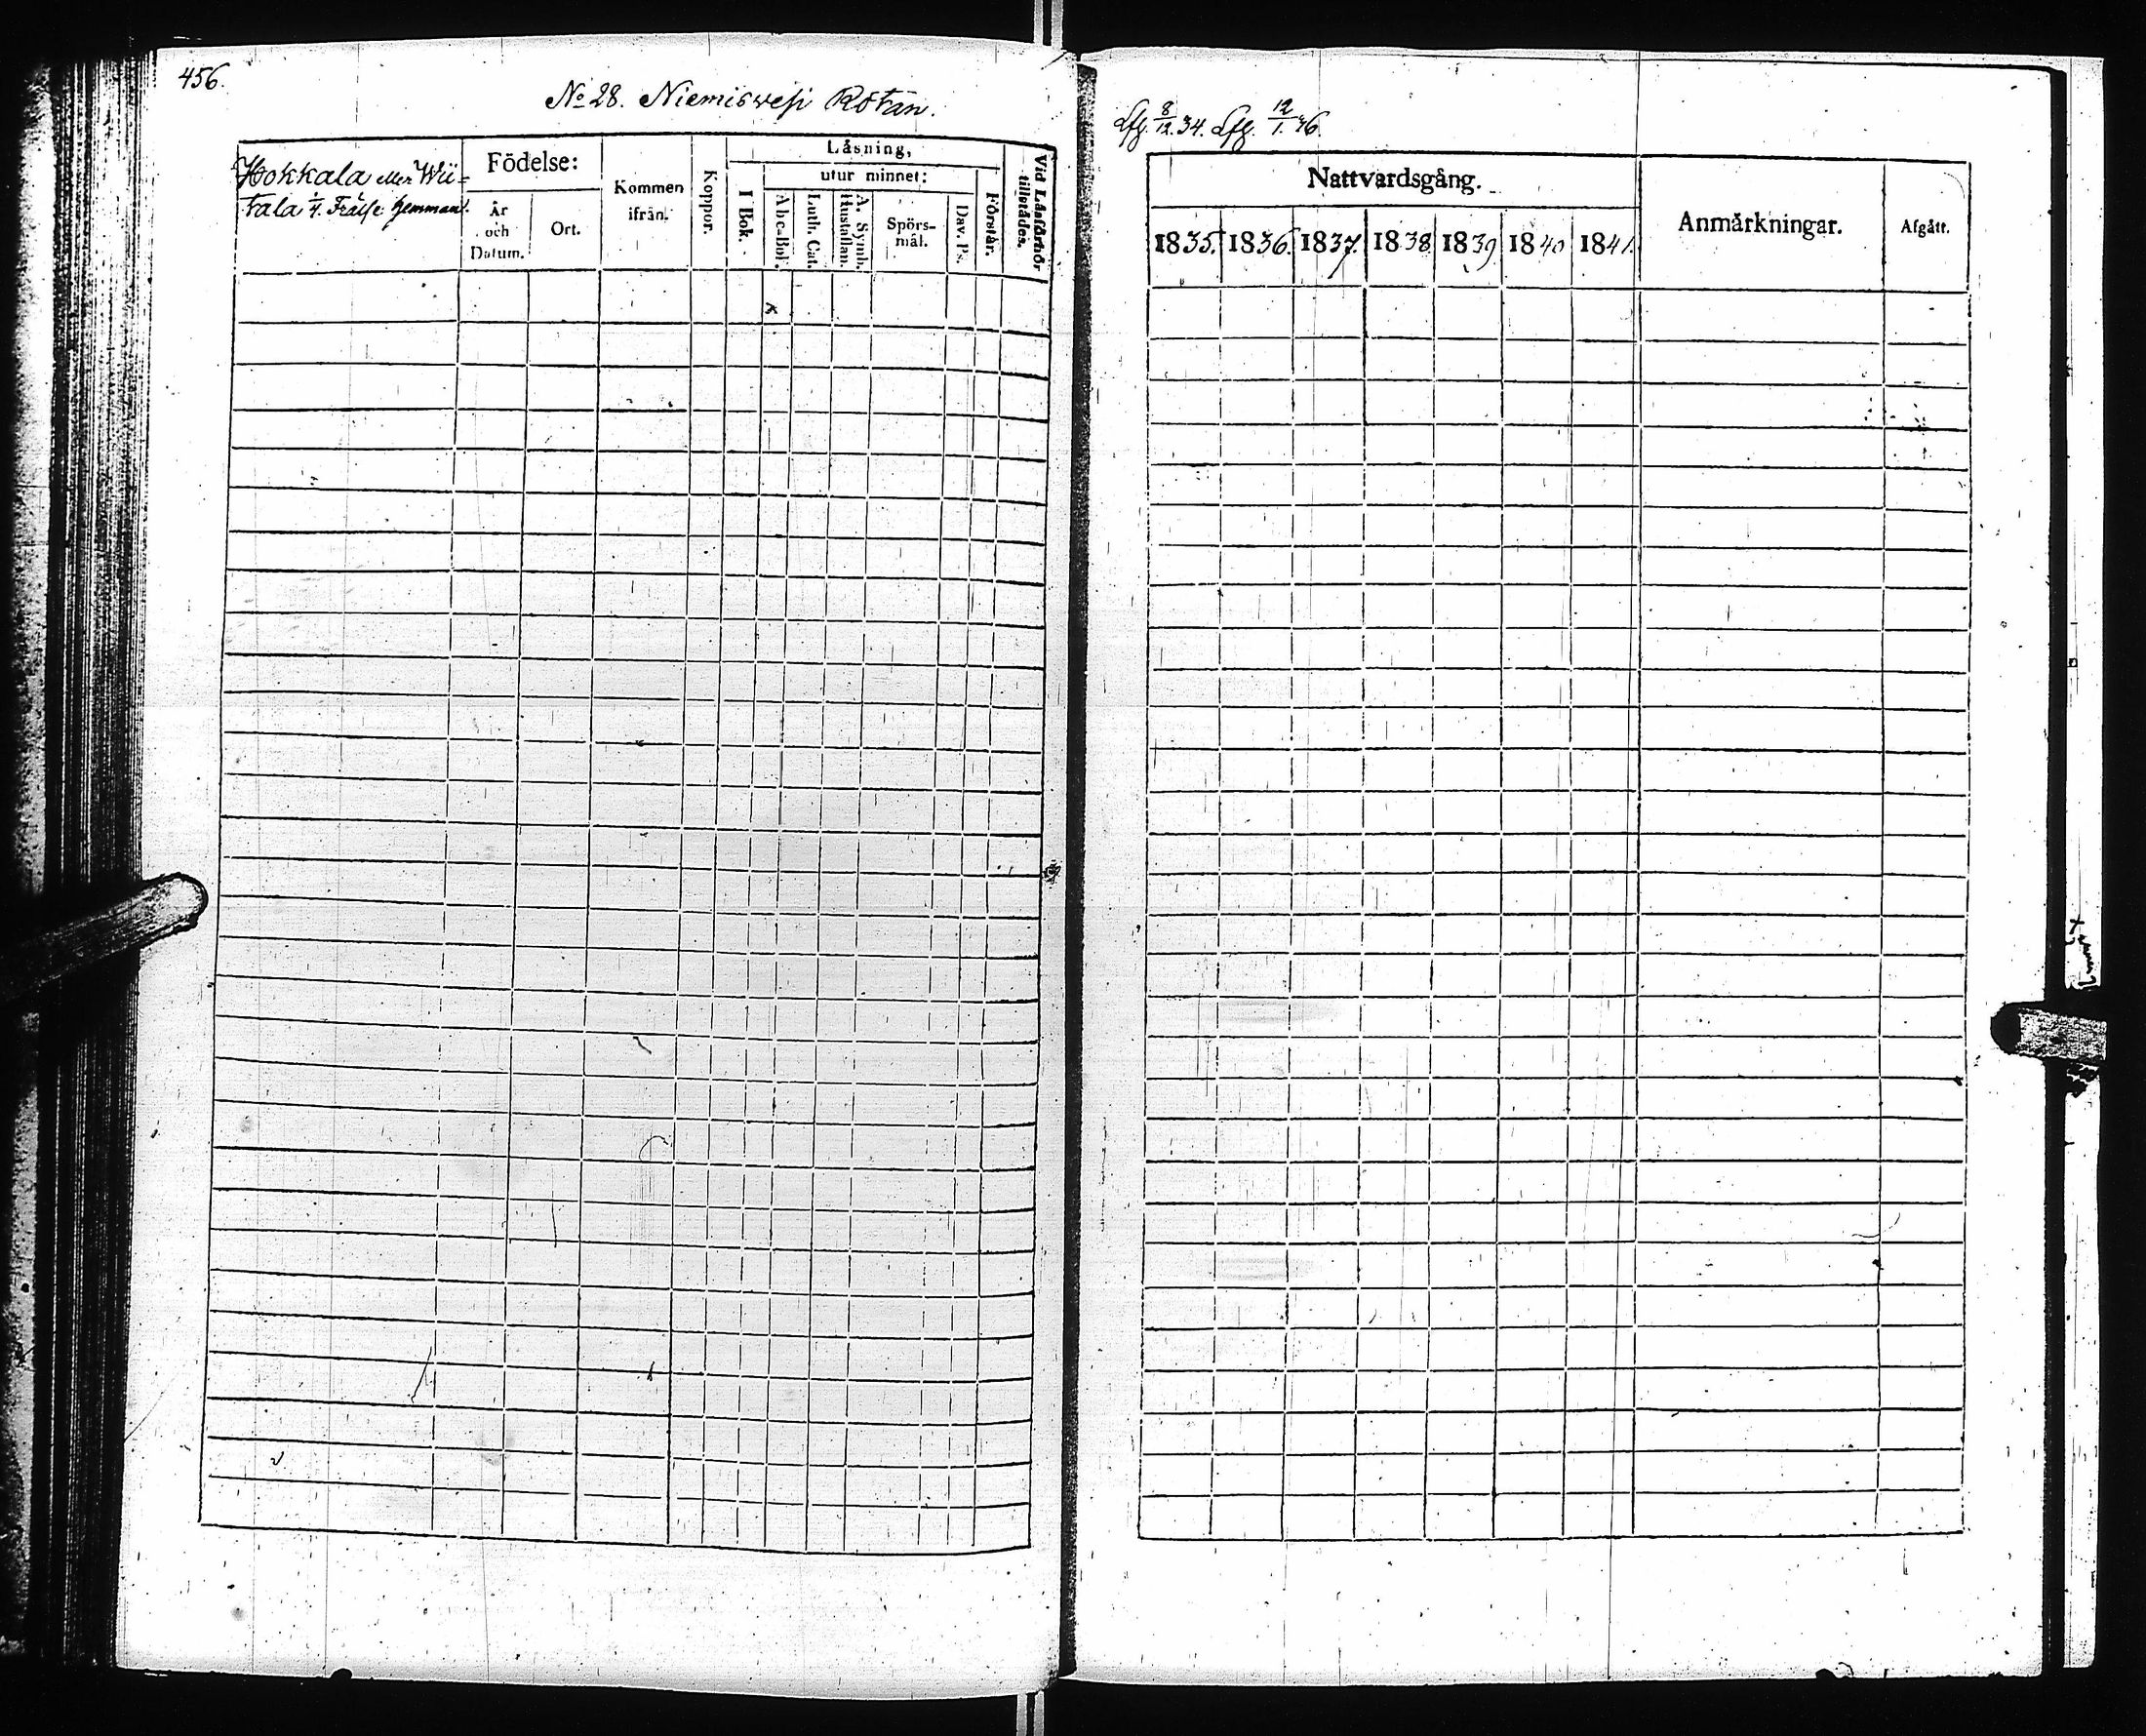 456.
No 28. Niemiswesi Rotan.
Hokkala eller Wii-
tala 1/4. Frälse hemman.
Födelse:
År och Datum.
Ort.
Kommen ifrån.
Koppor.
Läsning,
I Bok.
utur minnet:
Abc-Bok.
Luth. Cat.
A. Symb. Hustaflan.
Spörs-mål.
Dav. Ps.
Förstår.
Vid Läsförhör tillstådes.
8/12. 34. 12/1. 46.
Nattvardsgång.
1835. 1836. 1837. 1838. 1839. 1840 1841.
Anmärkningar.
Afgått.